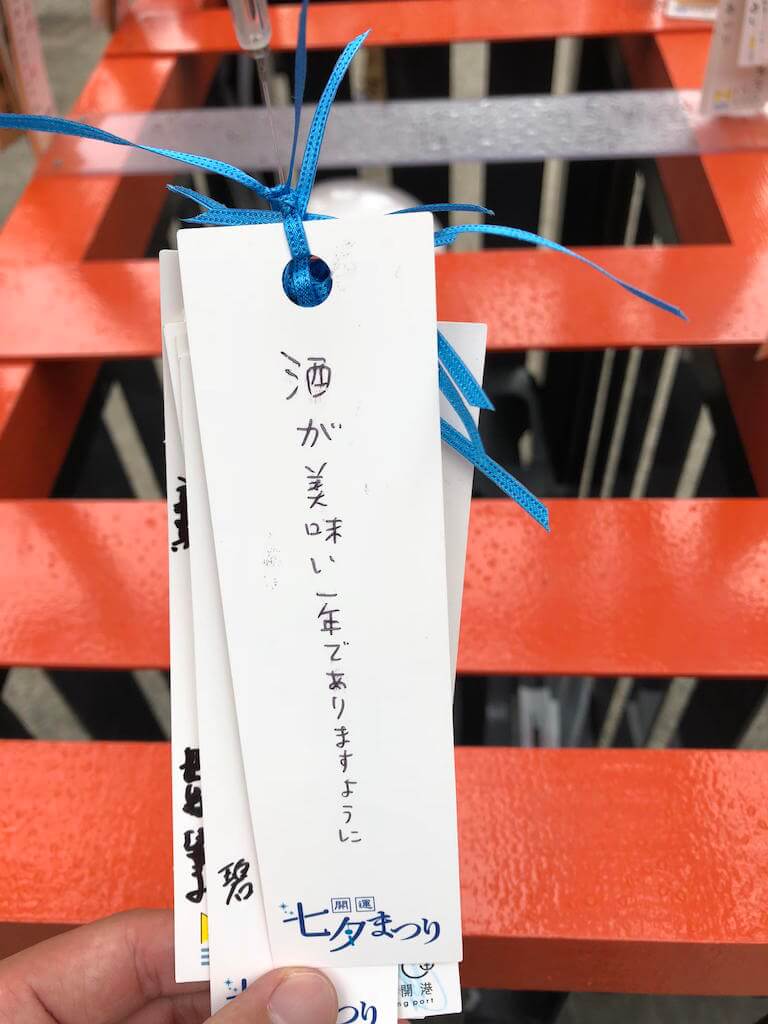 酒が美味い一年でありますように
開運
七夕まつり
碧
開港
ng port